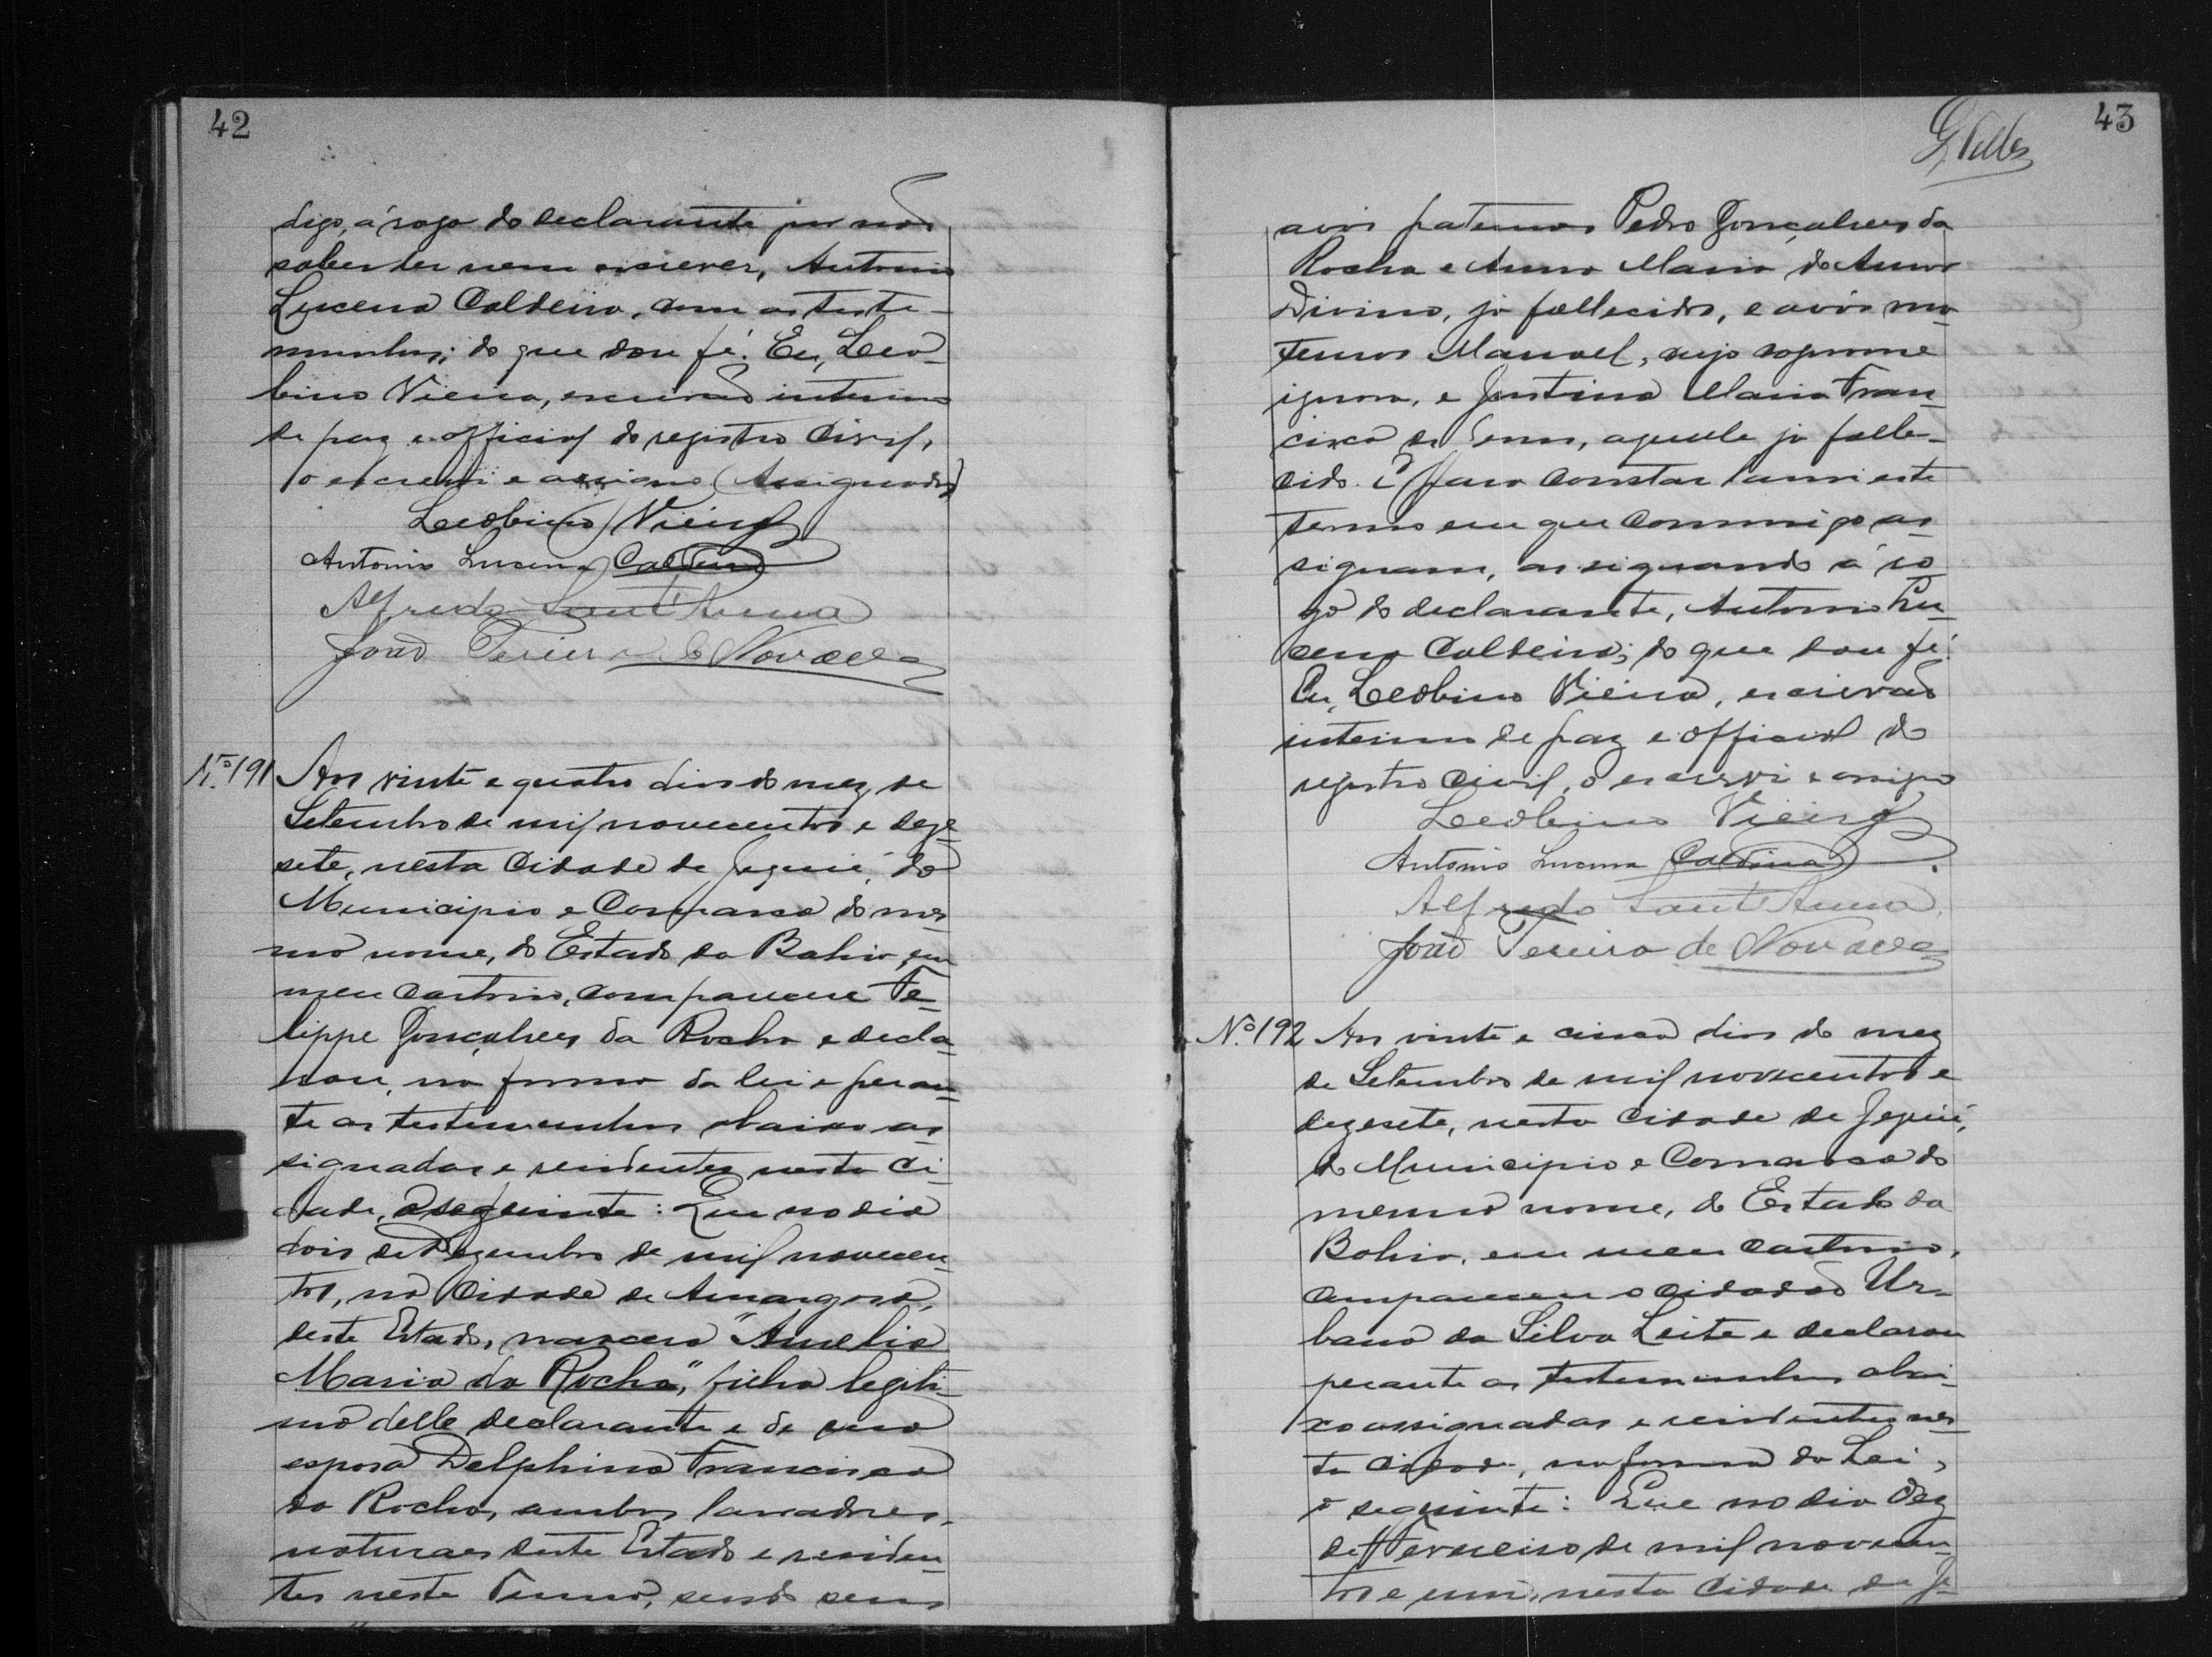 42
digo, á rogo do declarante por não
saber ler nem escrever, Antonio
Lucena Caldeira, com as teste-
munhas; do que dou fé. Eu, Leo-
bino Vieira, escrivão interino
de paz e official do registro Civil,
o escrevi e assigno (Assignados)
Leobino Vieira
Antonio Lucena Caldeira
Alfredo Sant'Anna
João Pereira de Novaes
N.º 191 Aos vinte e quatro dias do mez de
Setembro de mil novecentos e deze-
sete, nesta Cidade de Jequié, do
Municipio e Comarca do mes-
mo nome, do Estado da Bahia, em
meu Cartorio, compareceu Fe-
lippe Gonçalves da Rocha e decla-
rou, na forma da lei e peran-
te as testemunhas abaixo as-
signadas e residentes nesta Ci-
dade, o seguinte: Que no dia
dois de Dezembro de mil novecen-
tos, na Cidade de Amargosa,
deste Estado, nascera "Amelia
Maria da Rocha", filha legiti-
ma delle declarante e de sua
esposa Delphina Francisca
da Rocha, ambos lavradores,
naturaes deste Estado e residen-
tes neste Termo, sendo seus
43
G Telles
avós paternos Pedro Gonçalves da
Rocha e Anna Maria do Amor
Divino, já fallecidos, e avós ma-
ternos Manoel, cujo sopronome
ignora, e Justina Maria Fran-
cisca de Senna, aquelle já falle-
cido. E para constar lavrei este
termo em que commigo as-
signam, assignando á ro-
go do declarante, Antonio Lu-
cena Caldeira; do que dou fé.
Eu, Leobino Vieira, escrivão
interino de paz e official do
registro Civil, o escrevi e assigno
Leobino Vieira
Antonio Lucena Caldeira
Alfredo Sant'Anna
João Pereira de Novaes
N.º 192 Aos vinte e cinco dias do mez
de Setembro de mil novecentos e
dezesete, nesta Cidade de Jequié,
do Municipio e Comarca do
mesmo nome, do Estado da
Bahia, em meu Cartorio,
compareceu o cidadão Ur-
bano da Silva Leite e declarou
perante as testemunhas abai-
xo assignadas e residentes nes-
ta Cidade, na forma da Lei,
o seguinte: Que no dia dez
de Fevereiro de mil novecen-
tos e um, nesta Cidade de Je-